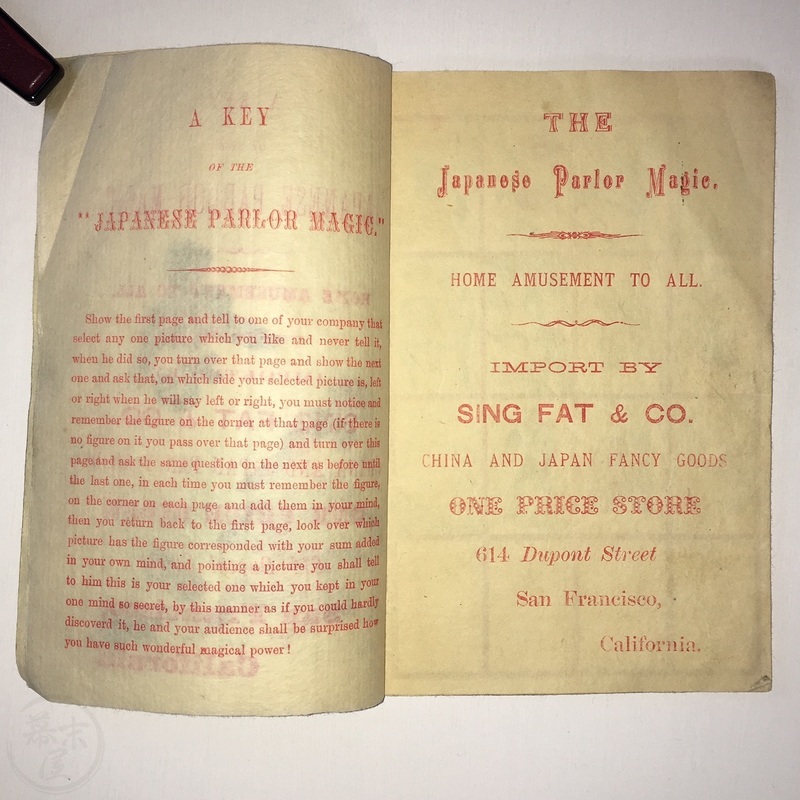 A KEY
OF THE
"JAPANESE PARLOR MAGIC."
Show the first page and tell to one of your company that
select any one picture which you like and never tell it,
when he did so, you turn over that page and show the next
one and ask that, on which side your selected picture is, left
or right when he will say left or right, you must notice and
remember the figure on the corner at that page (if there is
no figure on it you pass over that page) and turn over this
page and ask the same question on the next as before until
the last one, in each time you must remember the figure,
on the corner on each page and add them in your mind,
then you return back to the first page, look over which
picture has the figure corresponded with your sum added
in your own mind, and pointing a picture you shall tell
to him this is your selected one which you kept in your
one mind so secret, by this manner as if you could hardly
discoverd it, he and your audience shall be surprised how
you have such wonderful magical power!
THE
Japanese Parlor Magic.
HOME AMUSEMENT TO ALL.
IMPORT BY
SING FAT & CO.
CHINA AND JAPAN FANCY GOODS
ONE PRICE STORE
614 Dupont Street
San Francisco,
California.
幕末屋